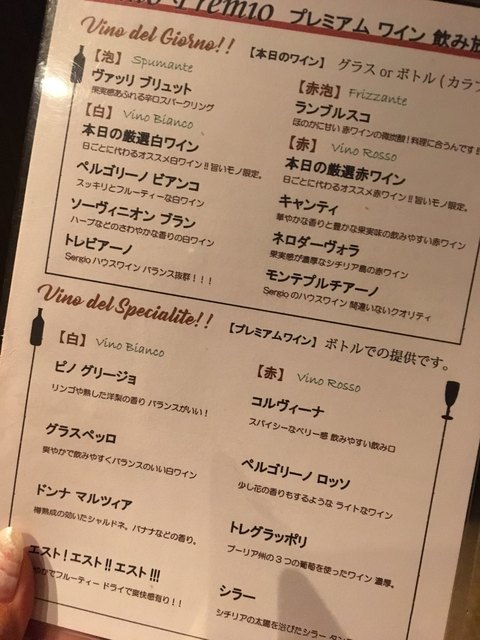 Premio プレミアム ワイン 飲み放
Vino del Giorno!!
【本日のワイン】 グラス or ボトル ( カラフ
【泡】 Spumante
ヴァッリ ブリュット
果実感あふれる辛口スパークリング
【白】 Vino Bianco
本日の厳選白ワイン
日ごとに代わるオススメ白ワイン!! 旨いモノ限定。
ペルゴリーノ ビアンコ
スッキリとフルーティーな白ワイン
ソーヴィニオン ブラン
ハーブなどのさわやかな香りの白ワイン
トレビアーノ
Sergio ハウスワイン バランス抜群！！！
【赤泡】 Frizzante
ランブルスコ
ほのかに甘い 赤ワインの微炭酸！料理に合うんです!!
【赤】 Vino Rosso
本日の厳選赤ワイン
日ごとに代わるオススメ赤ワイン!! 旨いモノ限定。
キャンティ
華やかな香りと豊かな果実味の飲みやすい赤ワイン
ネロダーヴォラ
果実感が濃厚なシチリア島の赤ワイン
モンテプルチアーノ
Sergio のハウスワイン 間違いないクオリティ
Vino del Specialite!!
【プレミアムワイン】 ボトルでの提供です。
【白】 Vino Bianco
ピノ グリージョ
リンゴや熟した洋梨の香り バランスがいい！
グラスペッロ
爽やかで飲みやすくバランスのいい白ワイン
ドンナ マルツィア
樽熟成の効いたシャルドネ。バナナなどの香り。
エスト！エスト!!エスト!!!
やかでフルーティー ドライで爽快感有り！！
【赤】 Vino Rosso
コルヴィーナ
スパイシーなベリー感 飲みやすい飲み口
ペルゴリーノ ロッソ
少し花の香りもするような ライトなワイン
トレグラッポリ
プーリア州の 3 つの葡萄を使ったワイン 濃厚。
シラー
シチリアの太陽を浴びたシラー タン